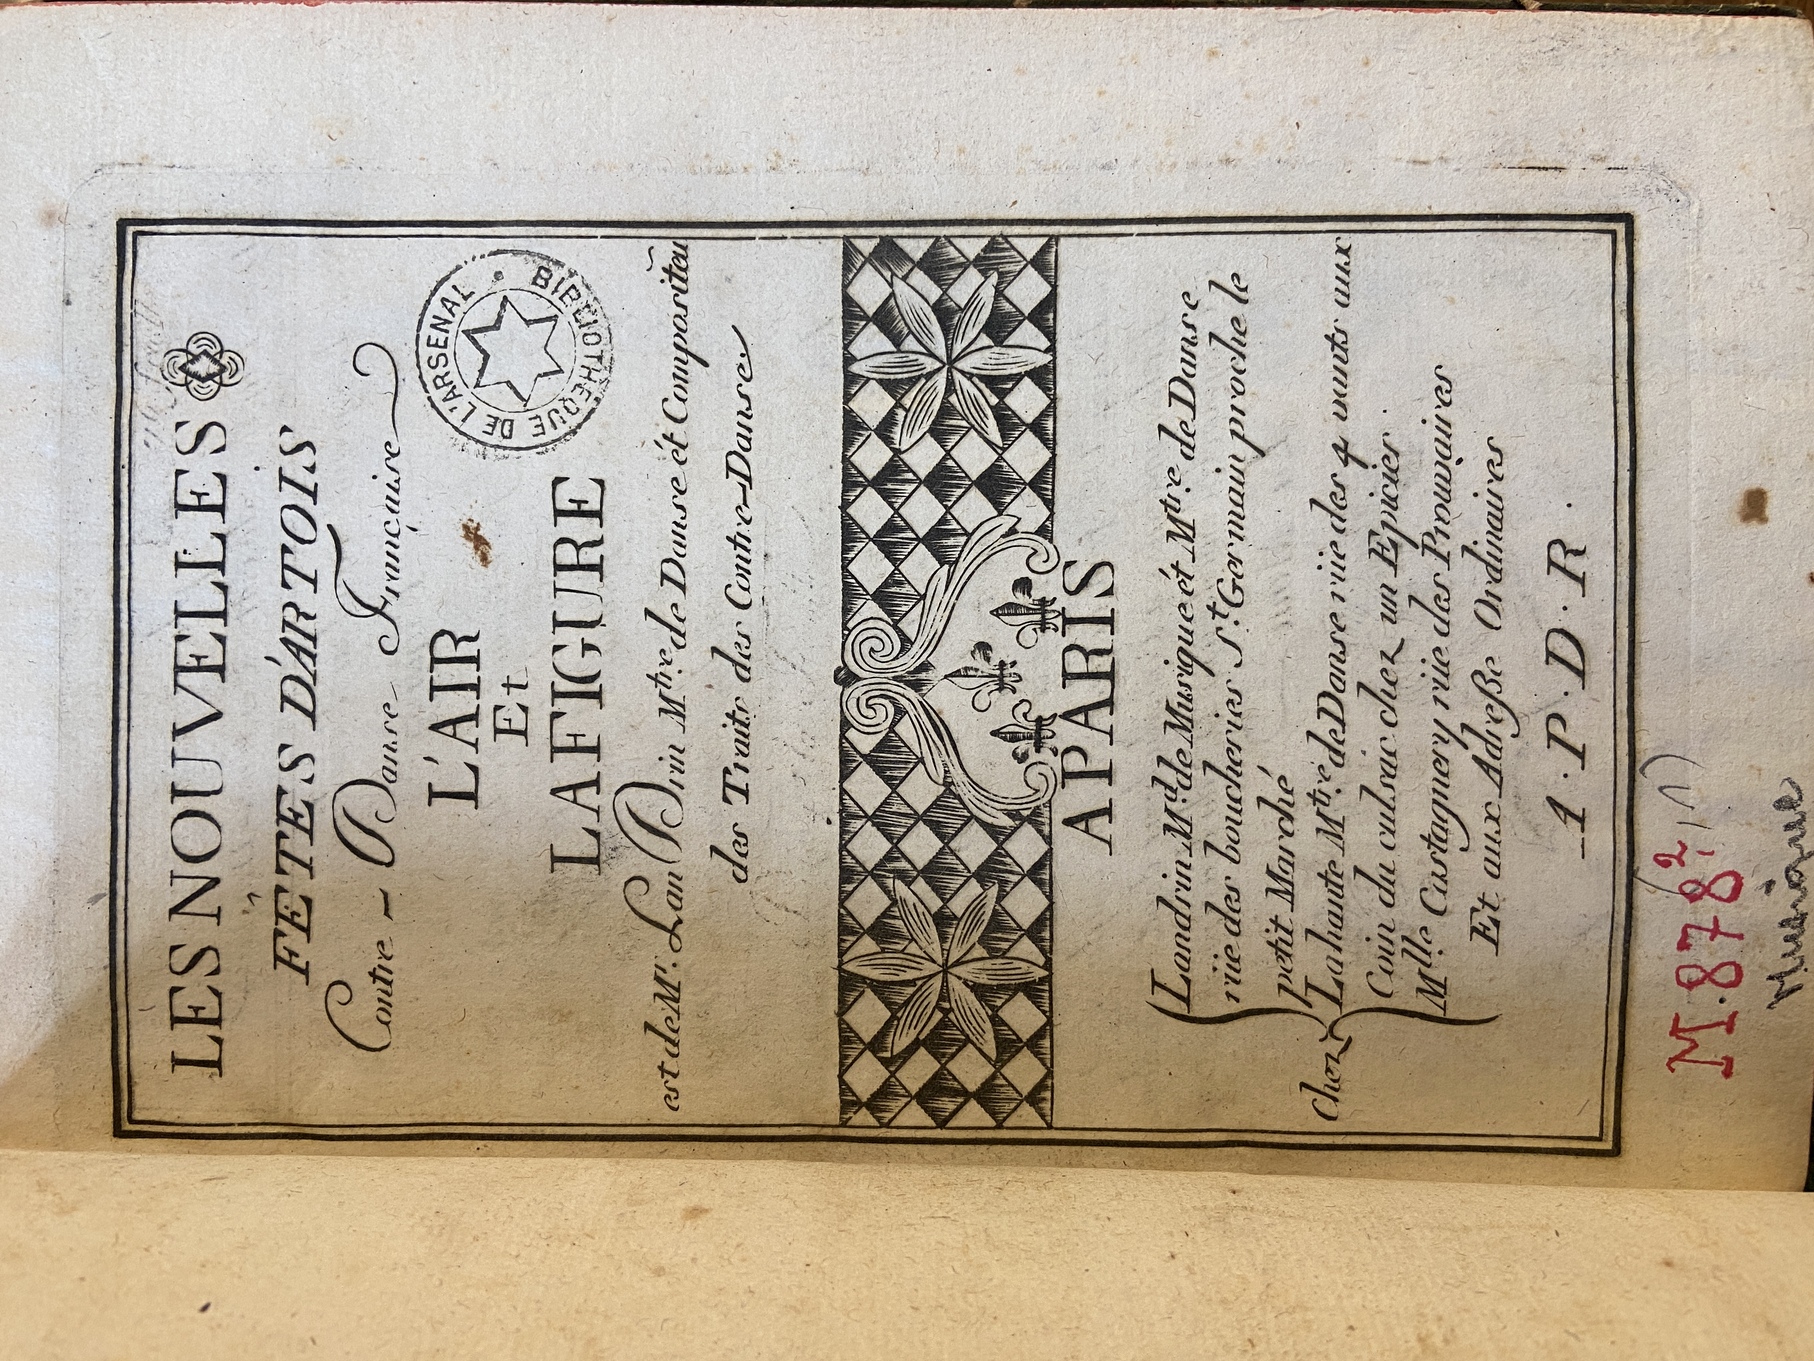 LES NOUVELLES
FÊTES D'ARTOIS
Contre - Danse Française
L'AIR
Et
LA FIGURE
est de Mr. Lan Drin Mtre. de Danse ét Compositeu
des Traits des Contre-Danse
BIBLIOTHEQUE DE L'ARSENAL
A PARIS
Chez
Landrin Md. de Musique ét Mtre. de Danse
rüe des boucheries St. Germain proche le
petit Marché
Lahante Mtre. de Danse rüe des 4 vants aux
Coin du culsaic chez un Epicier.
Mlle Castagnery rüe des Prouvaires
Et aux Adreße Ordinaires
A . P . D . R .
M. 878²
Musique